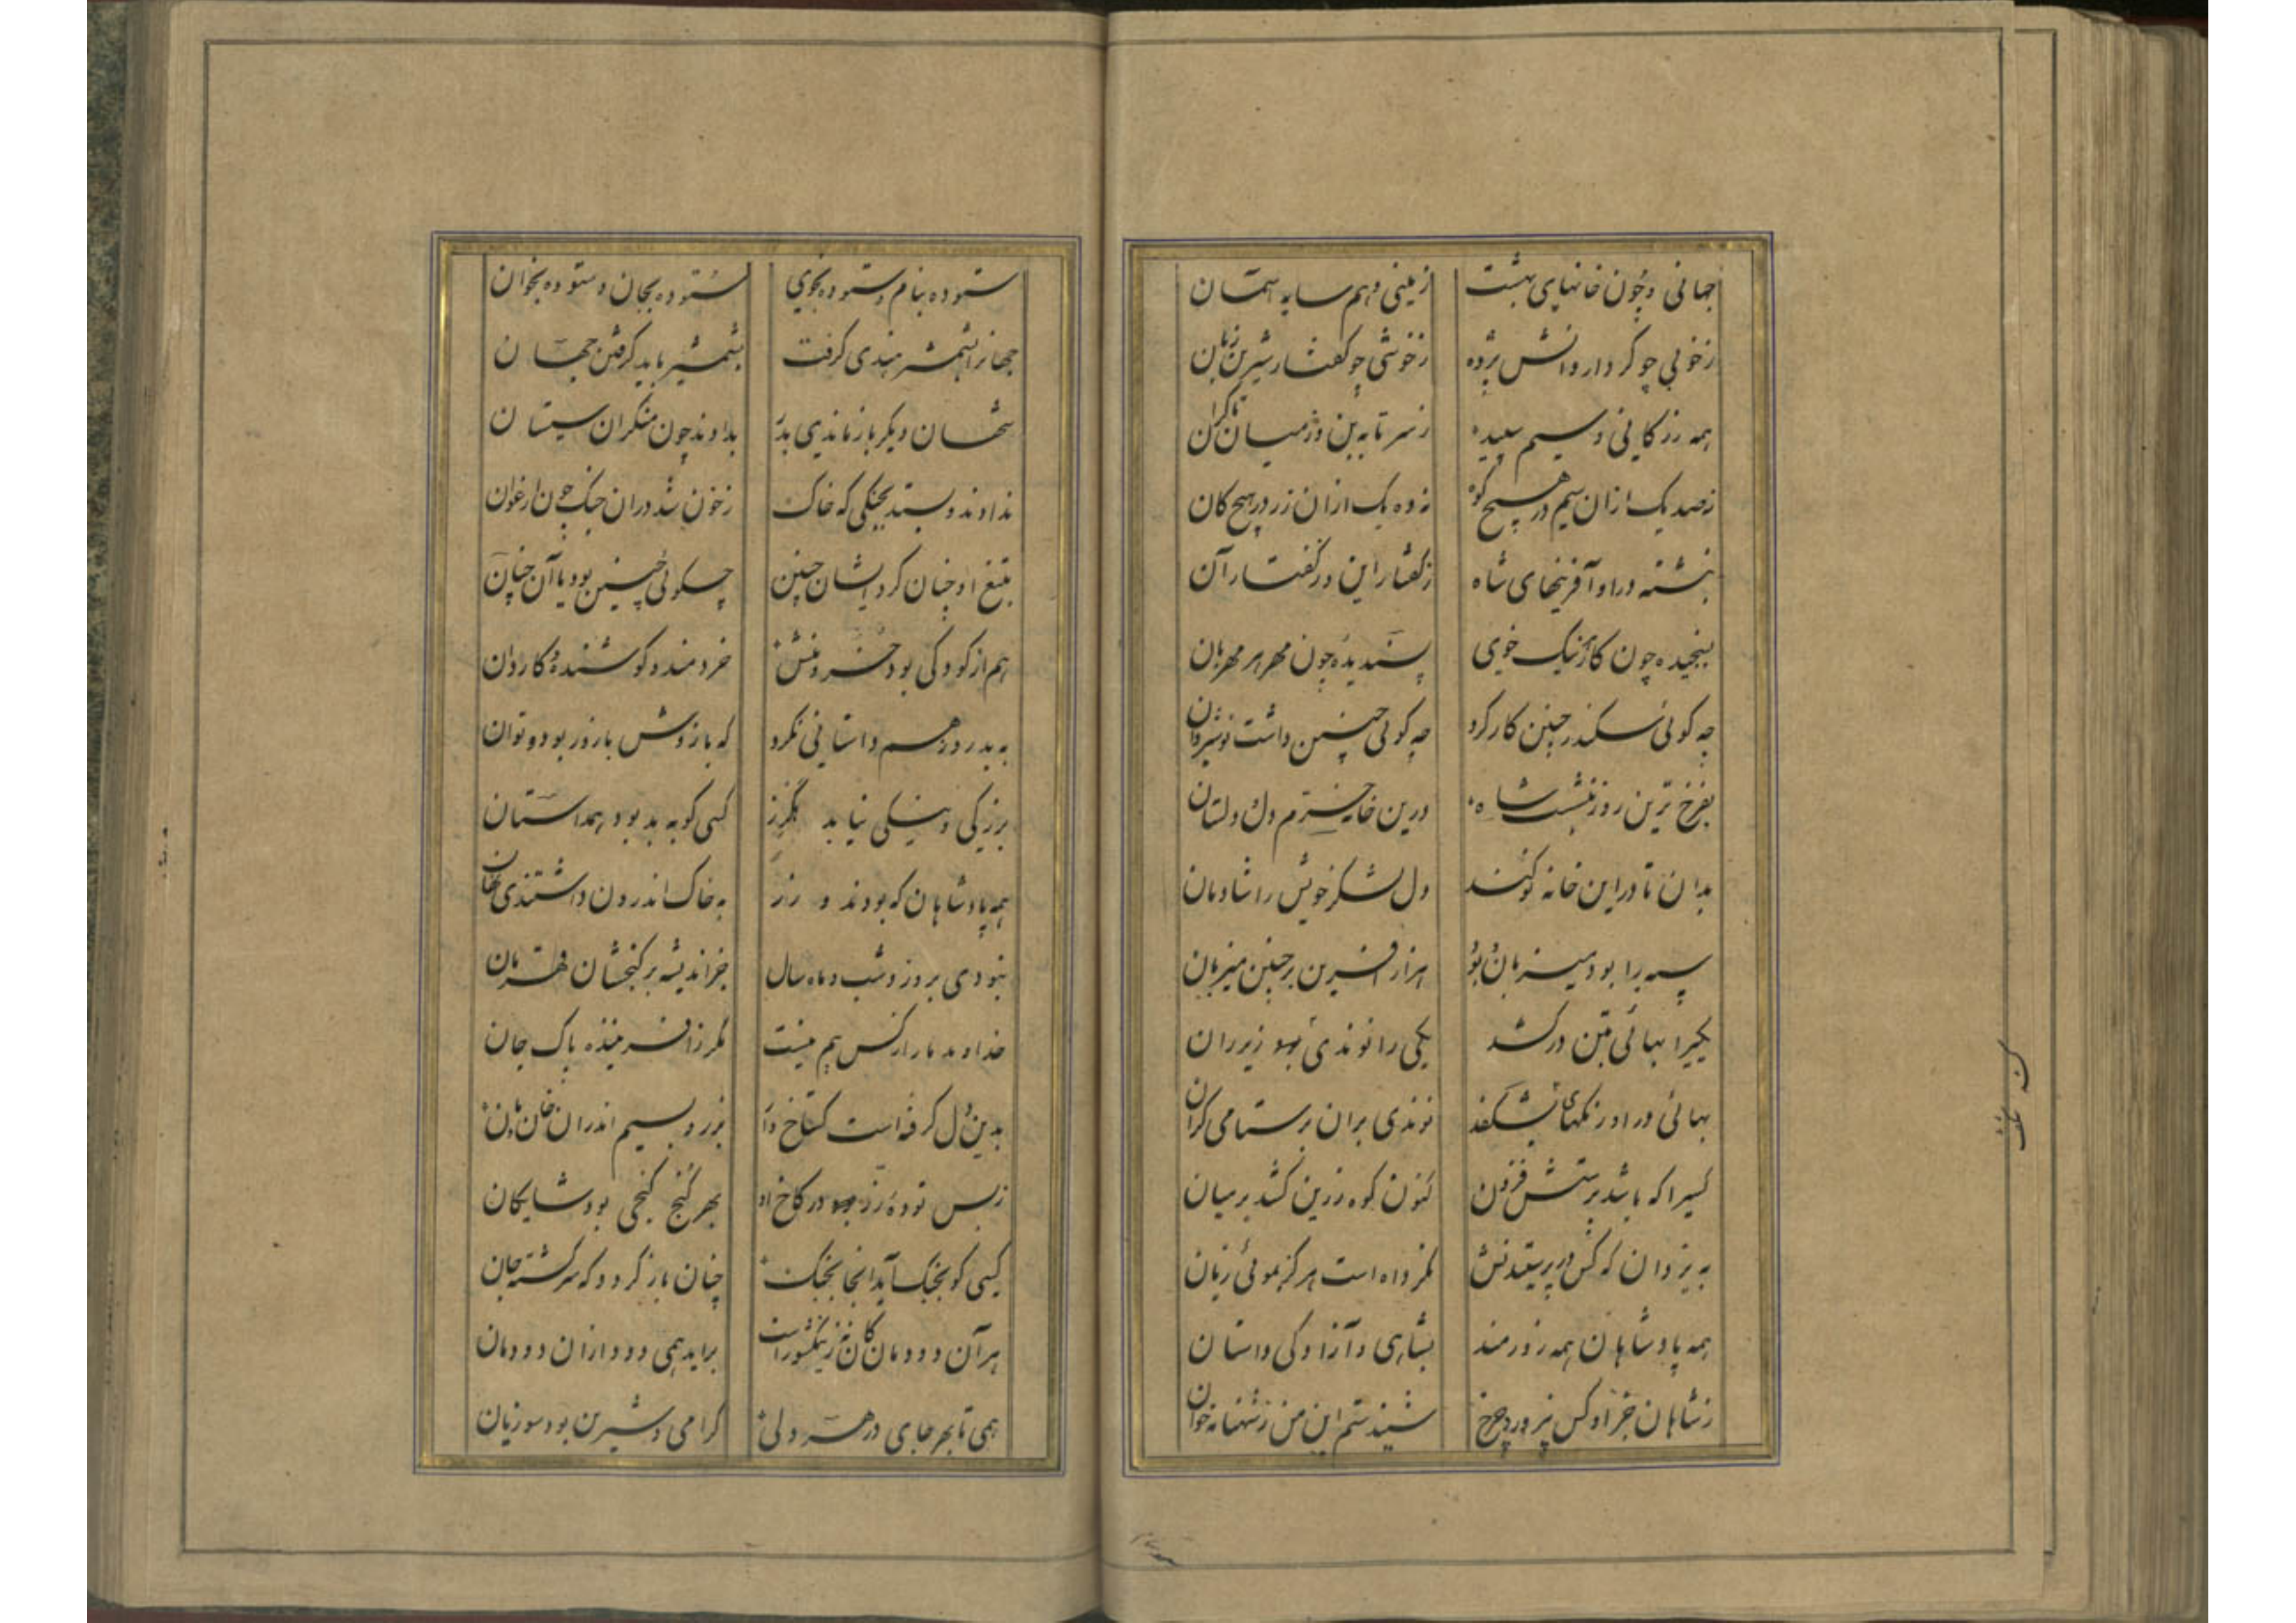 جهانی و چون خانهای بهشت زمینی و هم سایه آسمان
زخوبی چو کردار دانش پژوه زخوشی چو گفتار شیرین زبان
همه زر کانی و سیم سپید ز سر تا به بن وز میان تا کران
نه صد یک ازان سیم در هیچ کوه نه ده یک ازان زر در هیچ کان
نبشته دراو آفرینهای شاه ز گفتار این و ز گفتار آن
بسنجیده چون کار نیک خوی پسندیده چون مهر هر مهربان
چه کوئی سکندر چنین کار کرد چه کوئی چنین داشت نوشیروان
بفرخ ترین روز بنشست شاه درین خانه خرم دلستان
بدان تا دراین خانه نو کند دل لشکر خویش را شادمان
سپه را بود میزبان بود هزار آفرین بر چنین میزبان
یکیرا بهائی بتن درکشد یکی را نوندی به زیر ران
بهائی در او رنگهای بشگفد نوندی بران بر ستامی گران
کسیرا که باشد پرستش فزون کنون کوه زرین کشد بر میان
به یزدان که کس در پرستیدنش نکرده است هرگز بموئی زیان
همه پادشاهان همه زورمند بشاهی و آزادکی داستان
ز شاهان جز او کس نپرورد چرخ شنیدستم این من ز شهنامه خوان
ستوده بنام و ستوده بخوی ستوده بجان و ستوده بخوان
جهانرا بشمشیر هندی گرفت بشمشیر باید گرفتن جهان
شهان دیگر باز ماندی بد بدادند چون منکران سیستان
ندادند و بستد بجنکی که خاک ز خون شد دران جنک چون ارغوان
بتیغ او چنان کرد ایشان چنین چکوئی چنین بود یا آن چنان
هم از کودکی بود خسرو منش خردمند و کوشنده و کاردان
به بد روز هم داستانی نکرد که بازوش با زور بود و توان
بزرکی و نیکی نیابد هکرز کسی کو به بد بود همداستان
همه پادشاهان که بودند زر به خاک اندرون داشتندی نهان
نبودی بروز و شب و ماه و سال جز اندیشه بر کنجشان قهرمان
خداوند ما را ز کس بیم نیست مکر ز آفریننده پاک جان
بدین دل گرفته است کستاخ وار بزر و بسیم اندران خان و مان
ز بس توده زر در کاخ او بهر کنج کنجی بود شایکان
کسی کو بجنک آید آنجا بجنک چنان باز کردد که سرکشته جان
هر آن دودمان کان نه زین کشور است برآید همی دود ازان دودمان
همی تا بهر جای در هر دلی گرامی و شیرین بود سوزیان